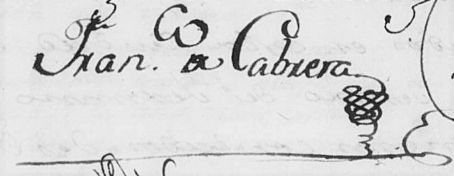 Fran.co a Cabrera